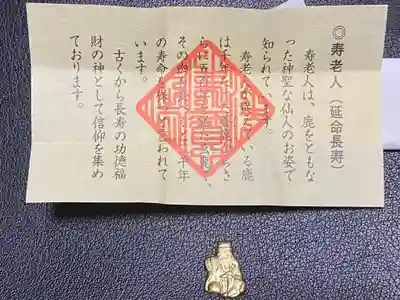 ◎寿老人（延命長寿）
寿老人は、鹿をともな
った神聖な仙人のお姿で
知られています。
寿老人が従えている鹿
は千年
らに五
その
の寿命を保つと言われて
います。
古くから長寿の功徳福
財の神として信仰を集め
ております。